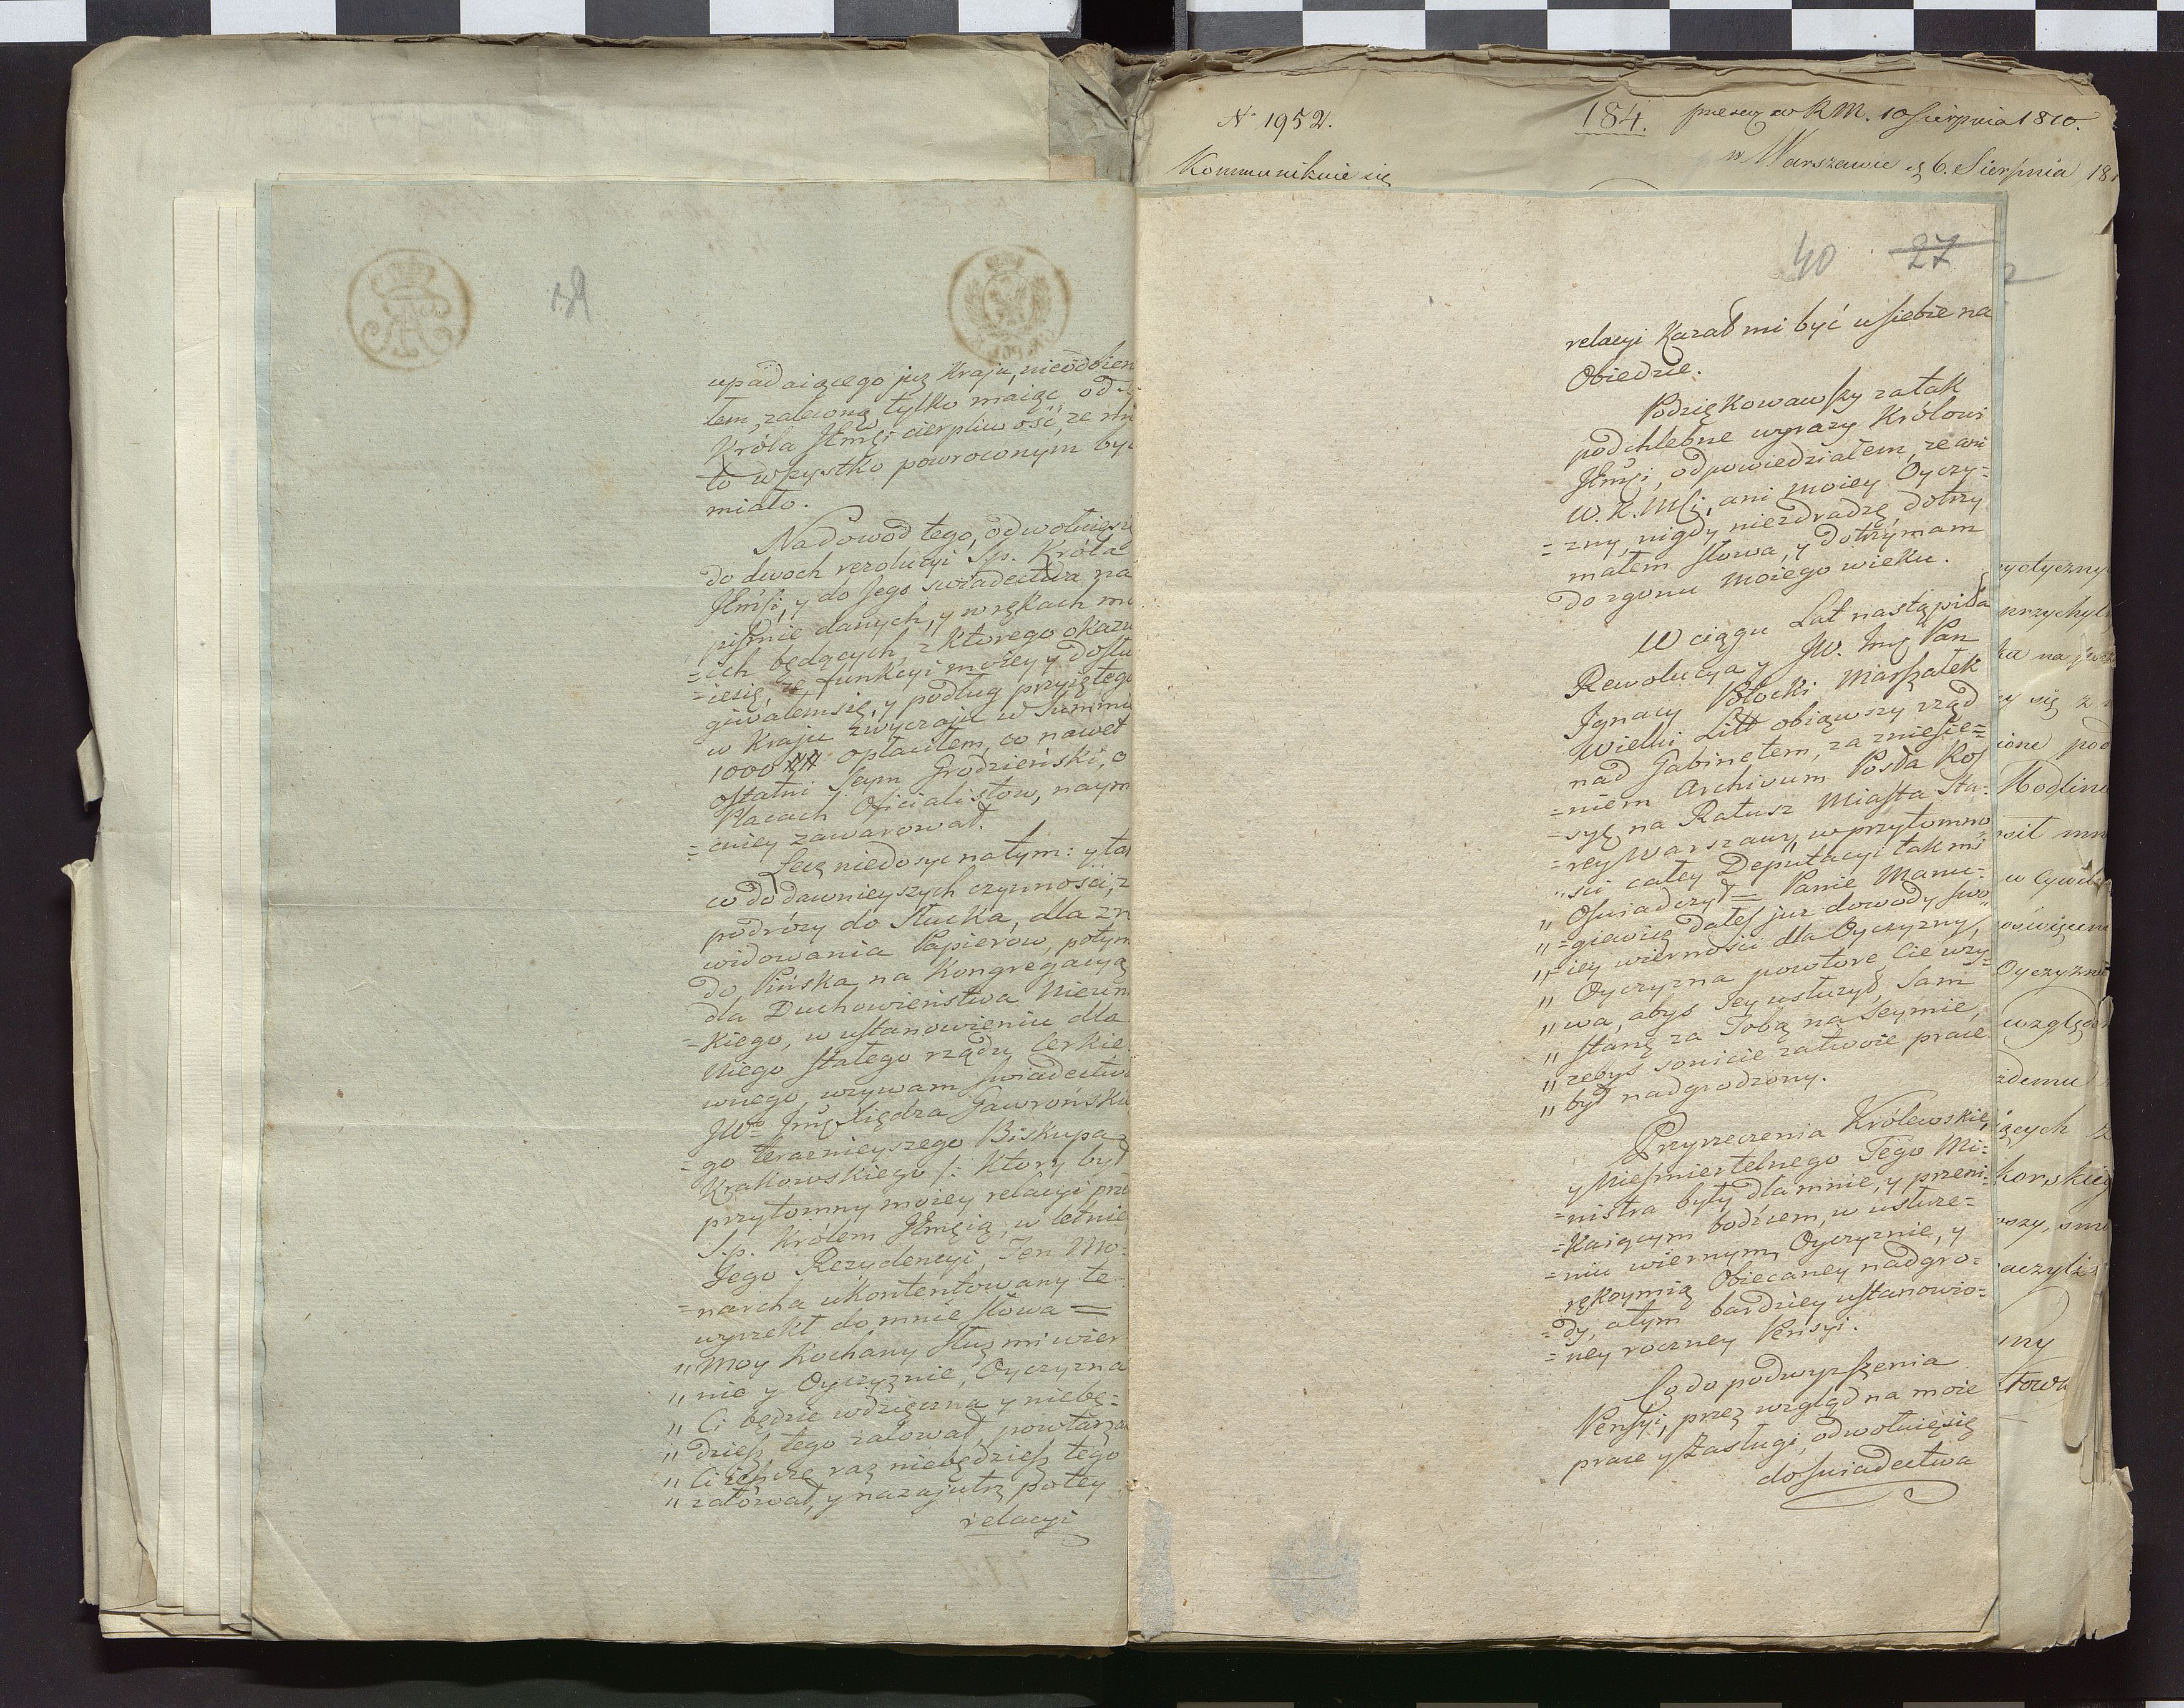 39
upadaiącego już Kraju, nieodbiera
łem, zaleconą tylko maiąc od
Króla Jmci cierpliwość, że mi
to wszystko powroconym być
miało.
Na dowod tego, odwołuię się
do dwoch rezolucyi Sp. Króla
Jmści, y do Jego swiadectwa na
pismie danych, y w rękach mo
=ich będących, z ktorego okazu
=iesię, że funkcyi moiey y dosłu
giwałemsię, y podług przyiętego
w Kraju zwyczaju w Summie
1000 opłaciłem, co nawet
ostatni Seym Grodzieński, o
Płacach Oficialistow, naym
=cniey zawarował.
Lecz niedosyc natym: y tak
co do dawnieyszych czynności, z
podróży do Słucka, dla zre
widowania Papierow, potym
do Pińska na Kongregacyą
dla Duchowieństwa Nieun
=kiego, w ustanowieniu dla
Niego stałego rządu Cerkie
wnego, wzywam swiadectwa
JWo Jmć Xiędza Gawrońskie
=go teraznieyszego Biskupa
Krakowskiego /: Ktory był
przytomny moiey relacyi prze
S.p. Królem Jmcią, w letnie
Jego Rezydencyi, Ten Mo=
=narcha ukontentowany te
wyrzekł do mnie słowa =
"Moy Kochany służ mi wier
"nie y Oyczyznie, Oyczyzna
"Ci będzie wdzięczna y niebę=
"dziesz tego żałował, powtarza
"Ci ieszcze raz niebędziesz tego
"żałował, y nazajutrz po tey
relacyi
N 1952.
184.
prezen w RM. 10 Sierpnia 1810.
w Warszawie d 6. Sierpnia 18
Kommunikuie się
40 27
relacyi Kazał mi być u siebie na
Obiedzie.
Podziękowawszy za tak
podchlebne wyrazy Królowi
Jmści, odpowiedziałem, że ani
W. K. Mści, ani moiey Oyczy=
=zny nigdy niezdradzę, dotrzy
małem słowa, y dotrzymam
do zgonu moiego wieku.
W ciągu Lat nastąpiła
Rewolucya y JW. Jmć Pan
Ignacy Potocki Marszałek
Wielki Litt obiąwszy rząd
nad Gabinetem, za zniesie=
=niem Archivum Posła Ros
=syi na Ratusz Miasta Sta=
=rey Warszawy, w przytomno
"ści całey Deputacyi tak mi
"Oswiadczył = Panie Manu=
"=giewicz dałeś już dowody swo
"iey wierności dla Oyczyzny,
"Oyczyzna powtore Cie wzy=
"wa, abyś Jey usłużył, Sam
"stanę za Tobą na Seymie,
"zebyś sowicie za twoie prace
"był nadgrodzony.
Przyrzeczenia Królewskie,
y Nieśmiertelnego Tego Mi=
=nistra były dla mnie, y przeni=
=kaiącym bodźcem, w usłuże=
=niu wiernym Oyczyznie, y
rękoymią Obiecaney nadgro=
=dy, a tym bardziey ustanowio=
=ney roczney Pensyi.
Co do podwyższenia
Pensyi, przez wzgląd na moie
prace y zasługi, odwołuięsię
do swiadectwa
przychyl
Modlin
Oyczyzni
względ